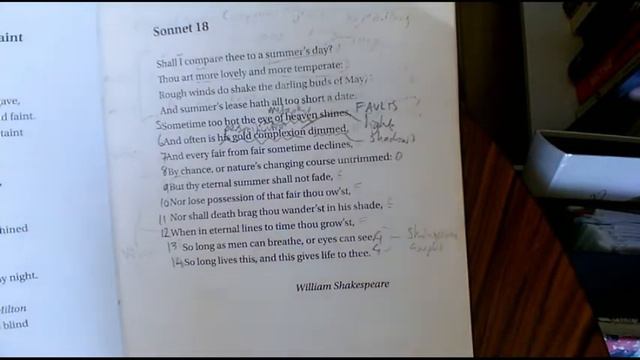 aint
ave,
d faint.
taint
hined
y night.
Milton
blind
Sonnet 18
Shall I compare thee to a summer's day?
Thou art more lovely and more temperate:
Rough winds do shake the darling buds of May,
And summer's lease hath all too short a date.
5 Sometime too hot the eye of heaven shines, FAULTS
6 And often is his gold complexion dimmed, light
7 And every fair from fair sometime declines,
8 By chance, or nature's changing course untrimmed:
9 But thy eternal summer shall not fade,
10 Nor lose possession of that fair thou ow'st,
11 Nor shall death brag thou wander'st in his shade,
12 When in eternal lines to time thou grow'st,
13 So long as men can breathe, or eyes can see, G
14 So long lives this, and this gives life to thee. G
William Shakespeare